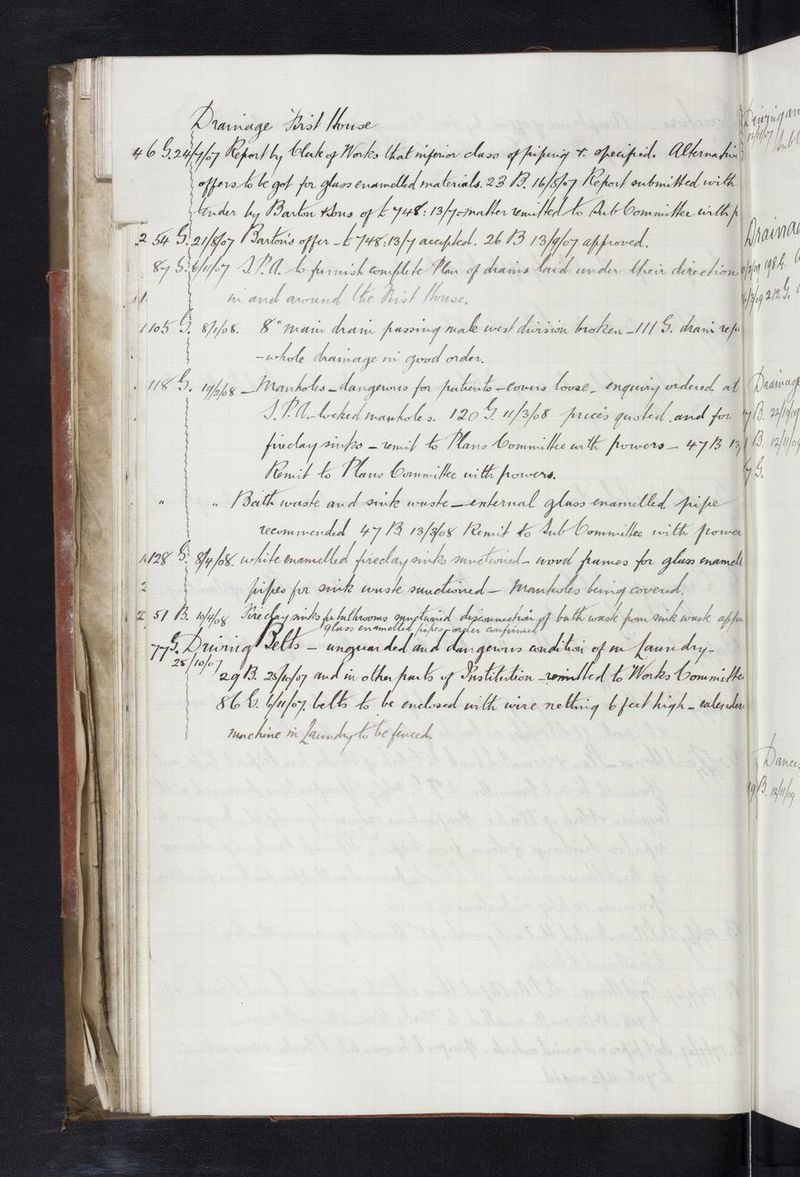 Drainage First House
46 G. 24/7/07 Report by Clerk of Works that inferior class of piping to specified. Alternative
offers to be got for glass enamelled materials. 23 B. 16/8/07 Report submitted with
tender by Barton & Sons of £748:13/7 - matter remitted to Sub Committee with p
2 54 G. 21/8/07 Barton's offer - £748:13/7 accepted. 26 B 13/9/07 approved.
87 G. 6/11/07 S.P.A. to furnish complete Plan of drains laid under their direction
in and around the First House.
105 G. 8/1/08. 8" main drain passing male west division broken - 111 G. drain
- whole drainage in good order.
118 G. - Manholes - dangerous for patients - covers loose - enquiry ordered at
S.P.A. - locked manholes. 120 G. 11/3/08 prices quoted and for
fireclay sinks - remit to Plans Committee with powers - 47 B 13
Remit to Plans Committee with powers.
" " Bath waste and sink waste - external glass enamelled pipe
recommended 47 B 13/3/08 Remit to Sub Committee with power
128 G. 8/4/08. white enamelled fireclay sinks sanctioned - wood frames for glass enamell
2 pipes for sink waste sanctioned - Manholes being covered.
2 51 B. 10/4/08 Fireclay sinks for bathrooms sanctioned disconnection of bath waste from sink waste
glass enamelled pipes - order confirmed
77 G. Driving Belts - unguarded and dangerous condition of in Laundry -
23/10/07
29 B. 25/10/07 and in other parts of Institution - remitted to Works Committee
86 G. 6/11/07. belts to be enclosed with wire netting 6 feet high - calender
machine in Laundry to be fenced.
Drainag
198 G.
212 G.
Drainage
B.
B. 12/11/09
G.
Dances
B. 12/11/09